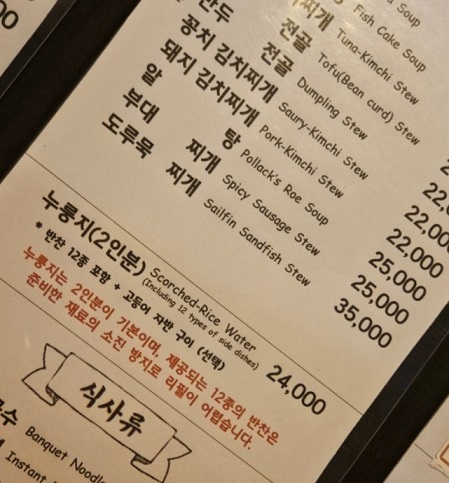 Soup
Fish Cake Soup
찌개 Tuna-Kimchi Stew
전골 Tofu(Bean curd) Stew
만두 전골 Dumpling Stew
꽁치 김치찌개 Saury-Kimchi Stew 22,000
돼지 김치찌개 Pork-Kimchi Stew 22,000
알 탕 Pollack's Roe Soup 25,000
부대 찌개 Spicy Sausage Stew 25,000
도루묵 찌개 Sailfin Sandfish Stew 35,000
누룽지(2인분) Scorched-Rice Water 24,000
(Including 12 types of side dishes)
* 반찬 12종 포함 + 고등어 자반 구이 (선택)
누룽지는 2인분이 기본이며, 제공되는 12종의 반찬은
준비한 재료의 소진 방지로 리필이 어렵습니다.
식사류
국수 Banquet Noodle
Instant